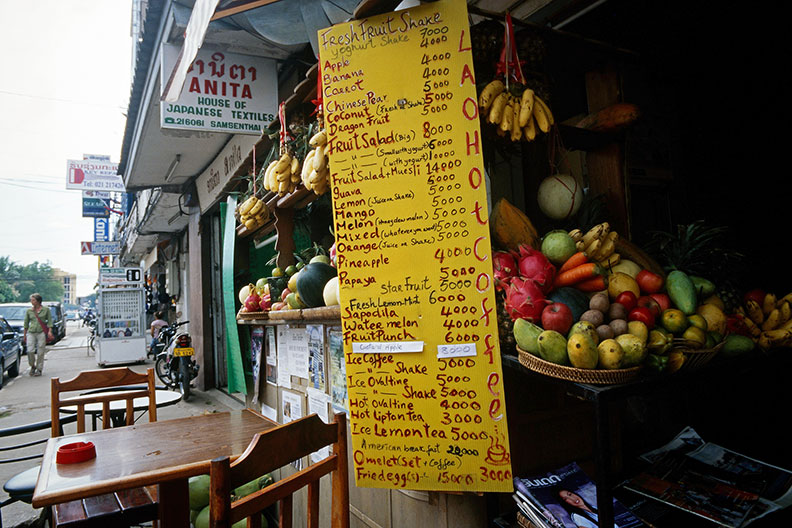 Fresh Fruit Shake
yoghurt Shake 7000
Apple 4000
Banana 4000
Carrot 4000
Chinese Pear 5000
Coconut (Fresh or Shake) 5000
Dragon Fruit 5000
Fruit Salad (Big) 8000
(Small with yogurt) 6000
(with yogurt)
Fruit Salad + Muesli 14000
guava 5000
Lemon (Juice or Shake) 5000
Mango 5000
Melon (Honey dew melon) 5000
Mixed (whatever you want) 5000
Orange (Juice or Shake) 5000
Pineapple 4000
Papaya 5000
Star Fruit 5000
Fresh Lemon Mint 6000
Sapodilla 4000
Watee melon 4000
Fruit Punch 6000
Custard Apple 8000
Ice Coffee 4000
Shake 5000
Ice Ovaltine 4000
Shake 5000
Hot Ovaltine 4000
Hot Lipton tea 3000
Ice Lemon tea 5000
American breakfast 20,000
Omelet (Set + Coffee)
Fried egg (s) 15000 3000
LAO HOT Coffee
ANITA
HOUSE OF
JAPANESE TEXTILES
216061 SAMSENTHAI
Internet